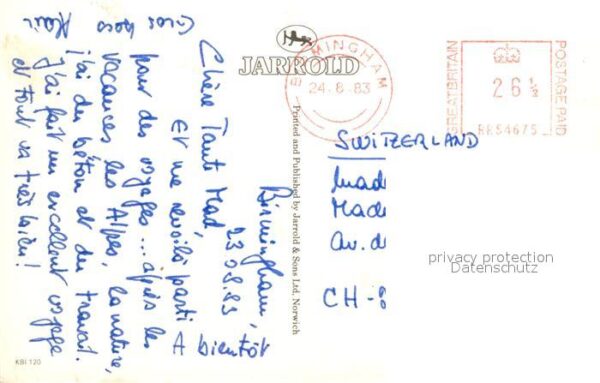 Birmingham,
23.08.83
Chère Tante Mad,
Et me revoilà parti
pour des voyages... après les
vacances les Alpes, la nature,
j'ai du béton et du travail.
J'ai fait un excellent voyage
et tout va très bien!
A bientôt
Gros bocs
Alain
JARROLD
Printed and Published by Jarrold & Sons Ltd, Norwich
KBI 120
MINGHAM
24.8.83
GREAT BRITAIN
26½
RR54675
POSTAGE PAID
SWITZERLAND
Mad
Av. d
CH-8
privacy protection
Datenschutz